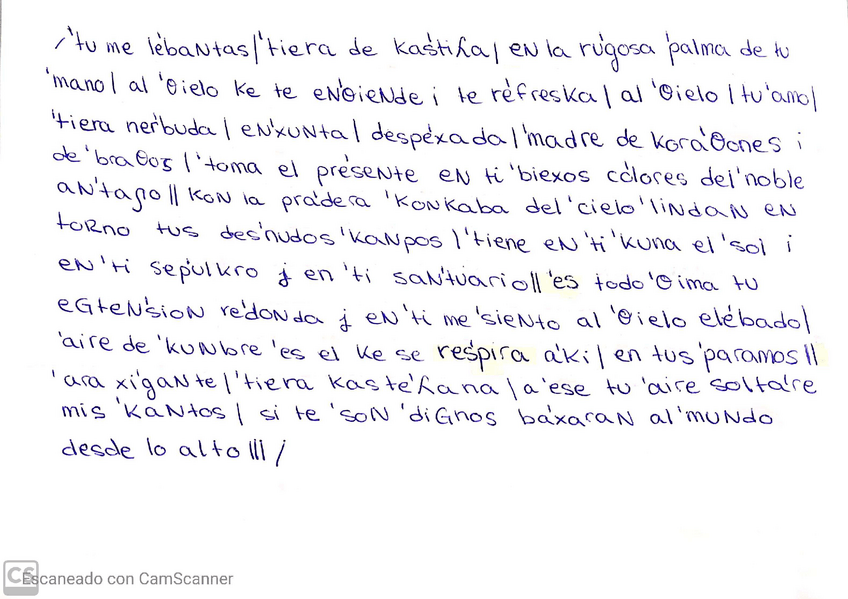 /ˈtu me leˈbaNtas|ˈtiera de kasˈtiʎa| eN la ruˈgosa ˈpalma de tu
ˈmano| al ˈθielo ke te eNˈθieNde i te reˈfreska| al ˈθielo |tu ˈamo|
ˈtiera nerˈbuda| eNˈxunta| despeˈxada|ˈmadre de koraˈθones i
de ˈbraθos|ˈtoma el preˈseNte eN ti ˈbiexos coˈlores del ˈnoble
aNˈtaɲo|| KoN la praˈdera ˈkoNkaba del ˈcielo ˈliNdaN eN
toRno tus desˈnudos ˈkaNpos|ˈtiene eN ˈti ˈkuna el ˈsol i
eN ˈti seˈpulkro j en ˈti saNtuˈario|| ˈes todo ˈθima tu
eGteNˈsioN reˈdoNda j eN ˈti me ˈsieNto al ˈθielo eleˈbado|
ˈaire de ˈkuNbre ˈes el ke se resˈpira aˈki| en tus ˈparamos||
ˈara xiˈgaNte|ˈtiera kasteˈʎana| a ˈese tu ˈaire soltaˈre
mis ˈkaNtos| si te ˈsoN ˈdiGnos baˈxaraN al ˈmuNdo
desde lo alto||| /
Escaneado con CamScanner